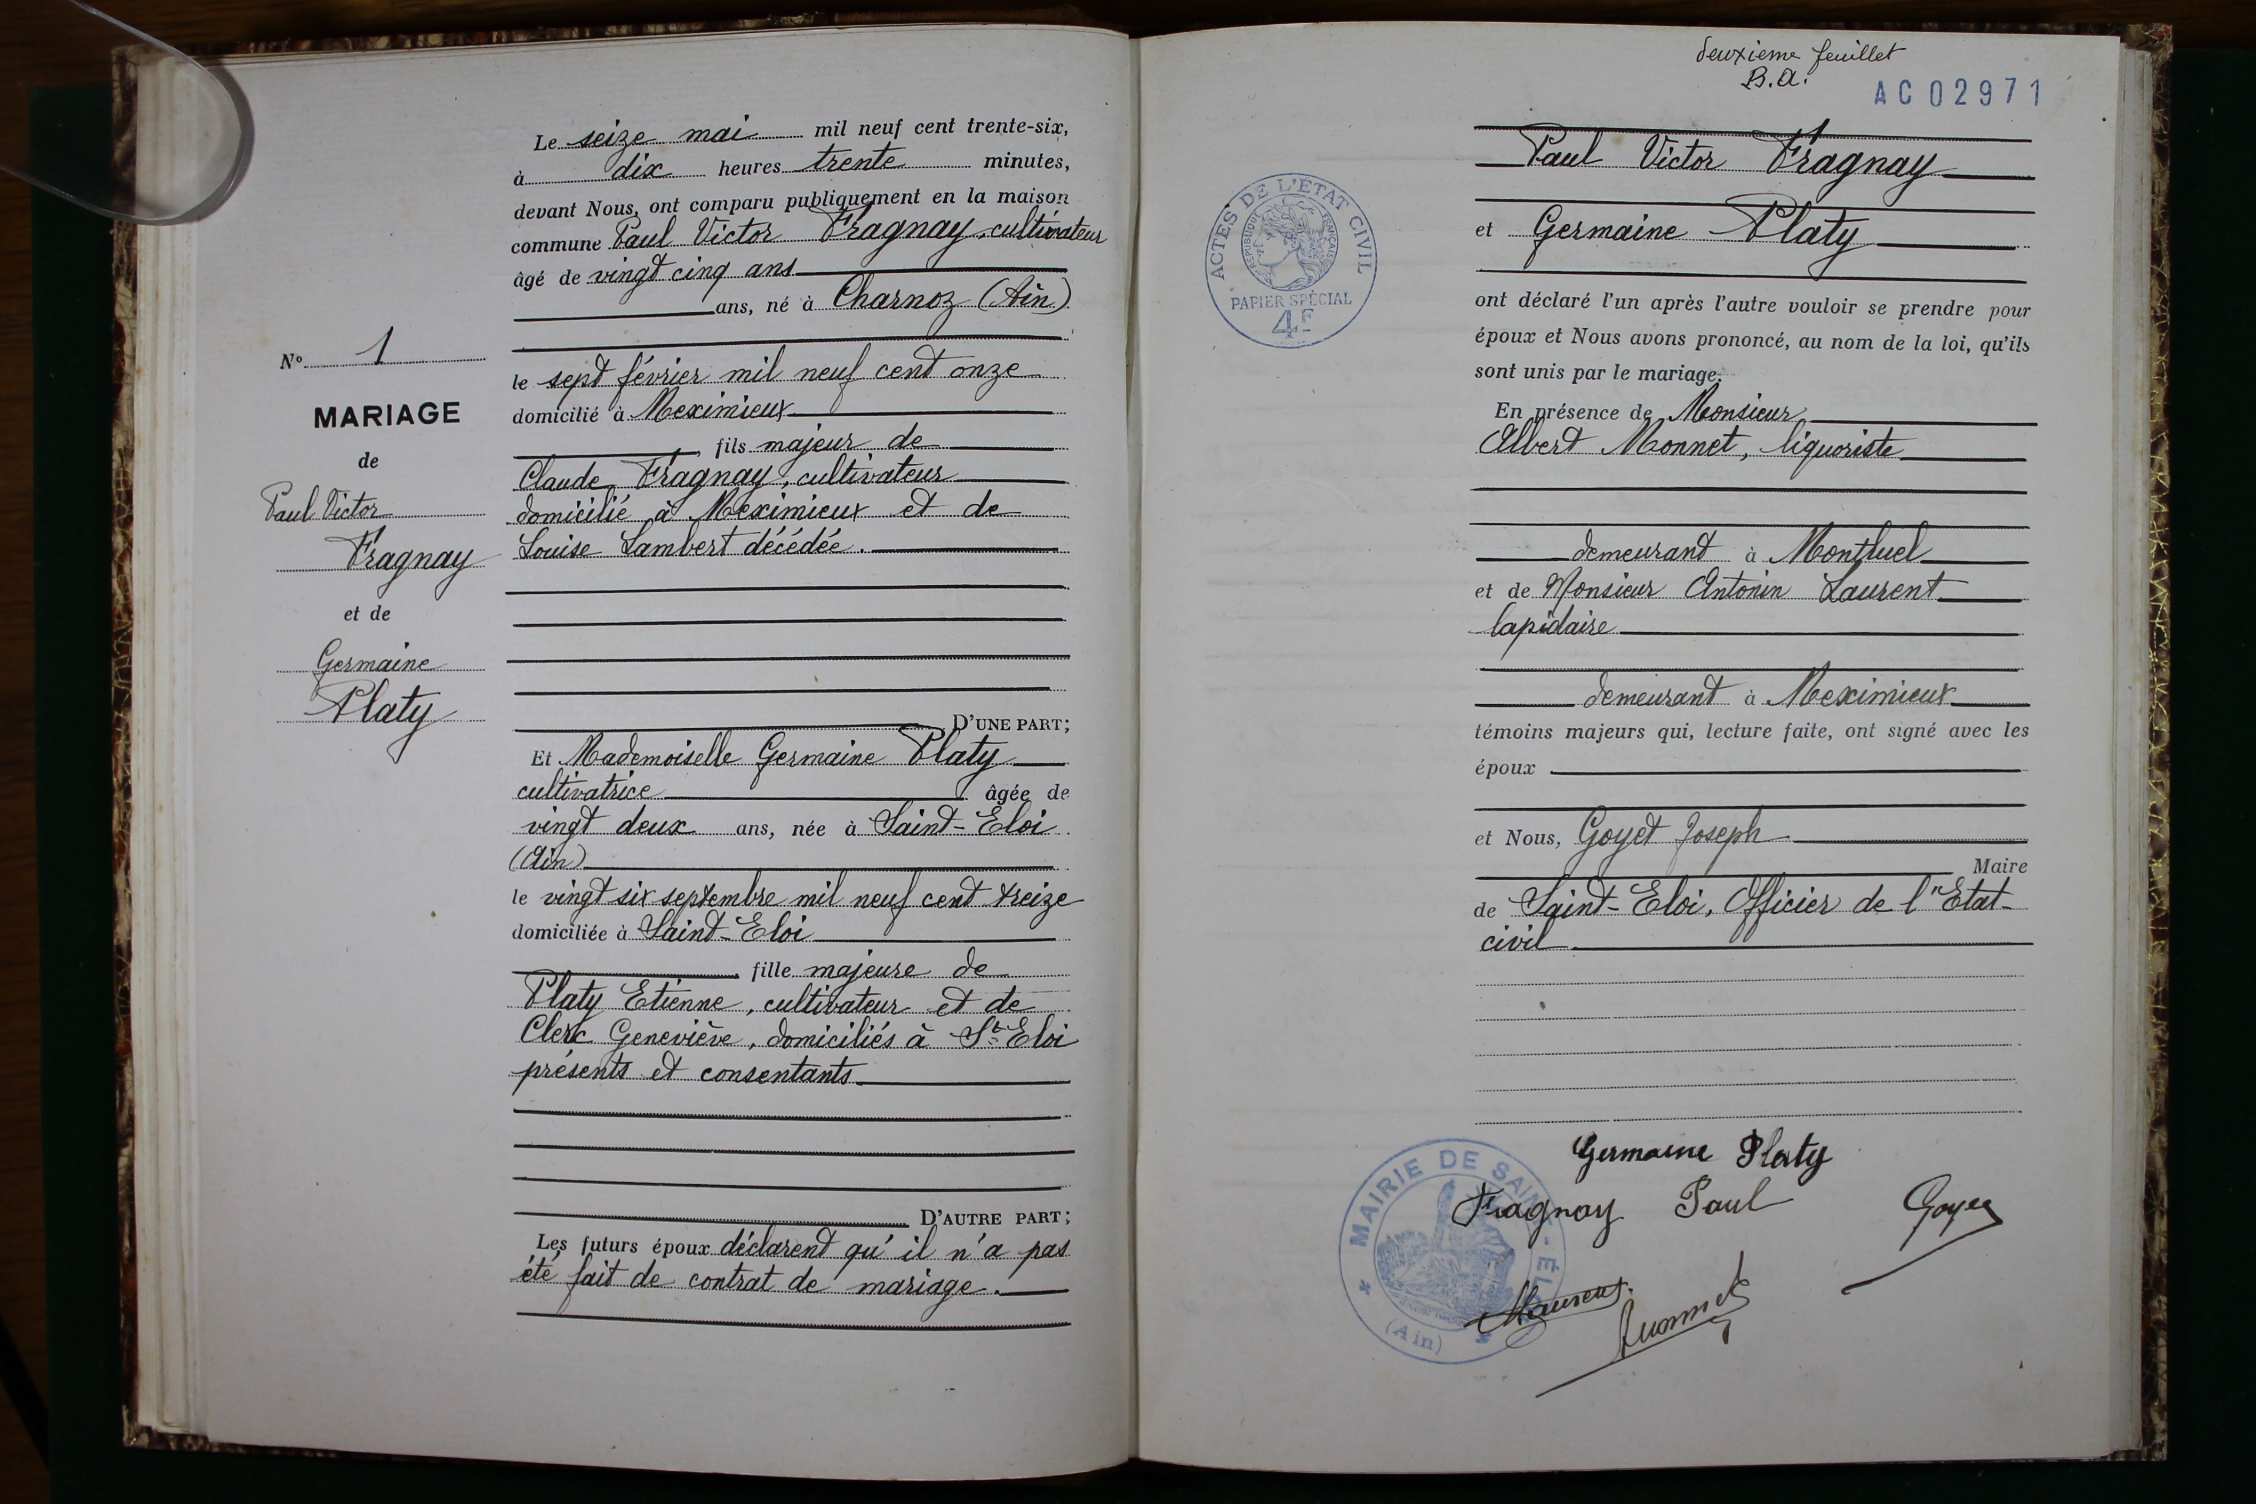 Le seize mai mil neuf cent trente-six,
à dix heures trente minutes,
devant Nous, ont comparu publiquement en la maison
commune Paul Victor Fragnay, cultivateur
âgé de vingt cinq ans
ans, né à Charnoz (Ain)
le sept février mil neuf cent onze
domicilié à Meximieux
fils majeur de
Claude Fragnay, cultivateur
domicilié à Meximieux et de
Louise Lambert décédée.
D'UNE PART;
Et Mademoiselle Germaine Platy
cultivatrice âgée de
vingt deux ans, née à Saint-Eloi
(Ain)
le vingt six septembre mil neuf cent treize
domiciliée à Saint-Eloi
fille majeure de
Platy Etienne, cultivateur et de
Clerc Geneviève, domiciliés à St Eloi
présents et consentants
D'AUTRE PART;
Les futurs époux déclarent qu'il n'a pas
été fait de contrat de mariage.
No 1
MARIAGE
de
Paul Victor
Fragnay
et de
Germaine
Platy
deuxieme feuillet
B.A.
AC02971
ACTES DE L'ÉTAT CIVIL
RÉPUBLIQUE FRANÇAISE
PAPIER SPÉCIAL
4F
Paul Victor Fragnay
et Germaine Platy
ont déclaré l'un après l'autre vouloir se prendre pour
époux et Nous avons prononcé, au nom de la loi, qu'ils
sont unis par le mariage.
En présence de Monsieur
Albert Monnet, liquoriste
demeurant à Montluel
et de Monsieur Antonin Laurent
lapidaire
demeurant à Meximieux
témoins majeurs qui, lecture faite, ont signé avec les
époux
et Nous, Goyet Joseph
Maire
de Saint-Eloi, Officier de l'Etat-
civil
Germaine Platy
Fragnay Paul
Goyet
MAIRIE DE SAINT-ÉLOI
(Ain)